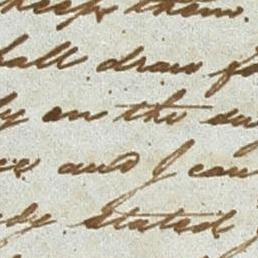 keeps them.
all draw fo
ly on the du
and I can
dy stated